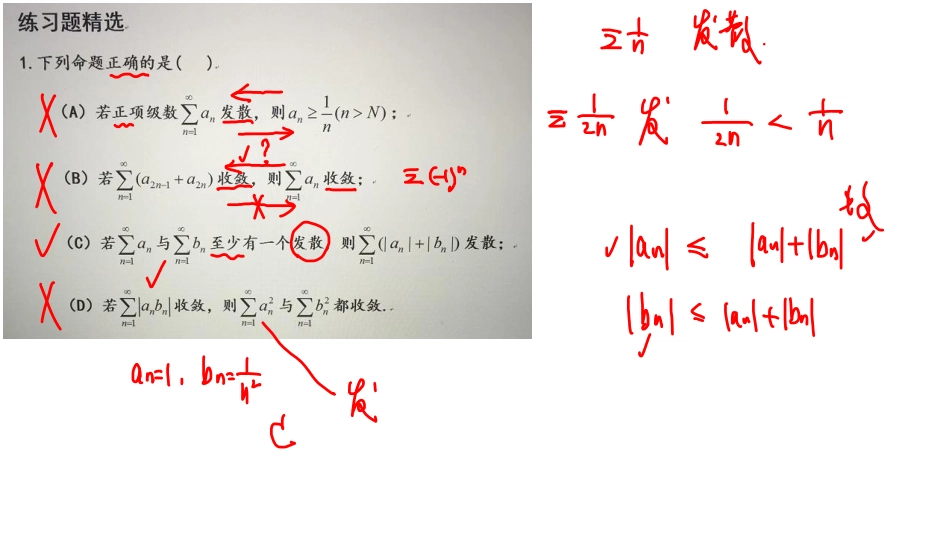 练习题精选
1.下列命题正确的是( )
(A) 若正项级数 \sum_{n=1}^{∞} a_n 发散，则 a_n ≥ \frac{1}{n} (n > N)；
(B) 若 \sum_{n=1}^{∞} (a_{2n-1} + a_{2n}) 收敛，则 \sum_{n=1}^{∞} a_n 收敛；
(C) 若 \sum_{n=1}^{∞} a_n 与 \sum_{n=1}^{∞} b_n 至少有一个发散 则 \sum_{n=1}^{∞} (|a_n| + |b_n|) 发散；
(D) 若 \sum_{n=1}^{∞} |a_n b_n| 收敛，则 \sum_{n=1}^{∞} a_n^2 与 \sum_{n=1}^{∞} b_n^2 都收敛.
✓ ?
Σ(-1)^n
a_n=1, b_n=\frac{1}{n^2}
发
C
Σ\frac{1}{n} 发散.
Σ\frac{1}{2n} 发 \frac{1}{2n} < \frac{1}{n}
✓ |a_n| ≤ |a_n|+|b_n|
|b_n| ≤ |a_n|+|b_n|